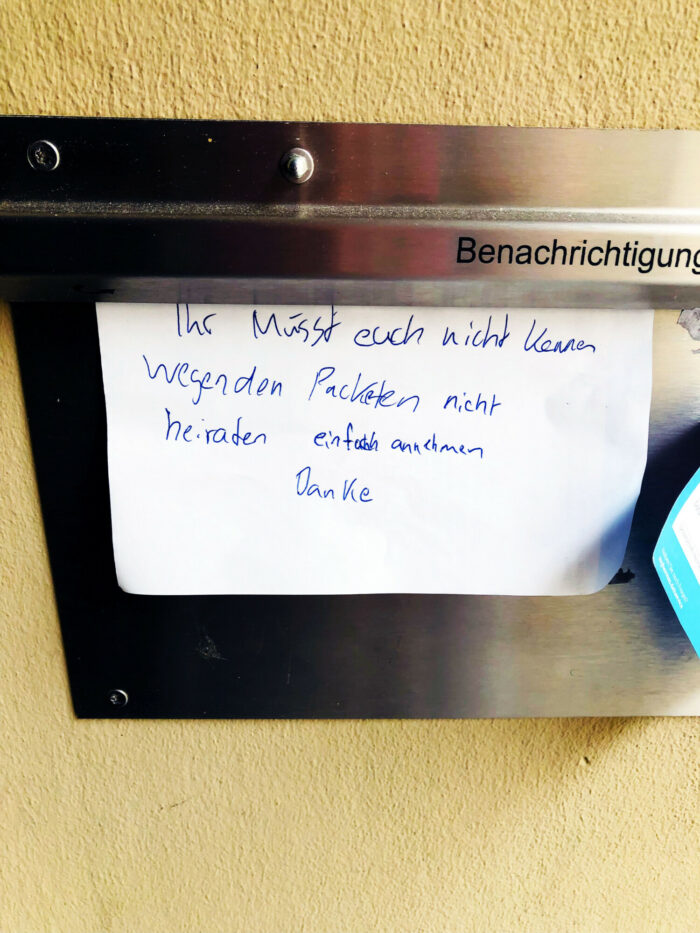 Benachrichtigung
Ihr Müsst euch nicht kennen
wegen den Packeten nicht
heiraten einfach annehmen
Danke